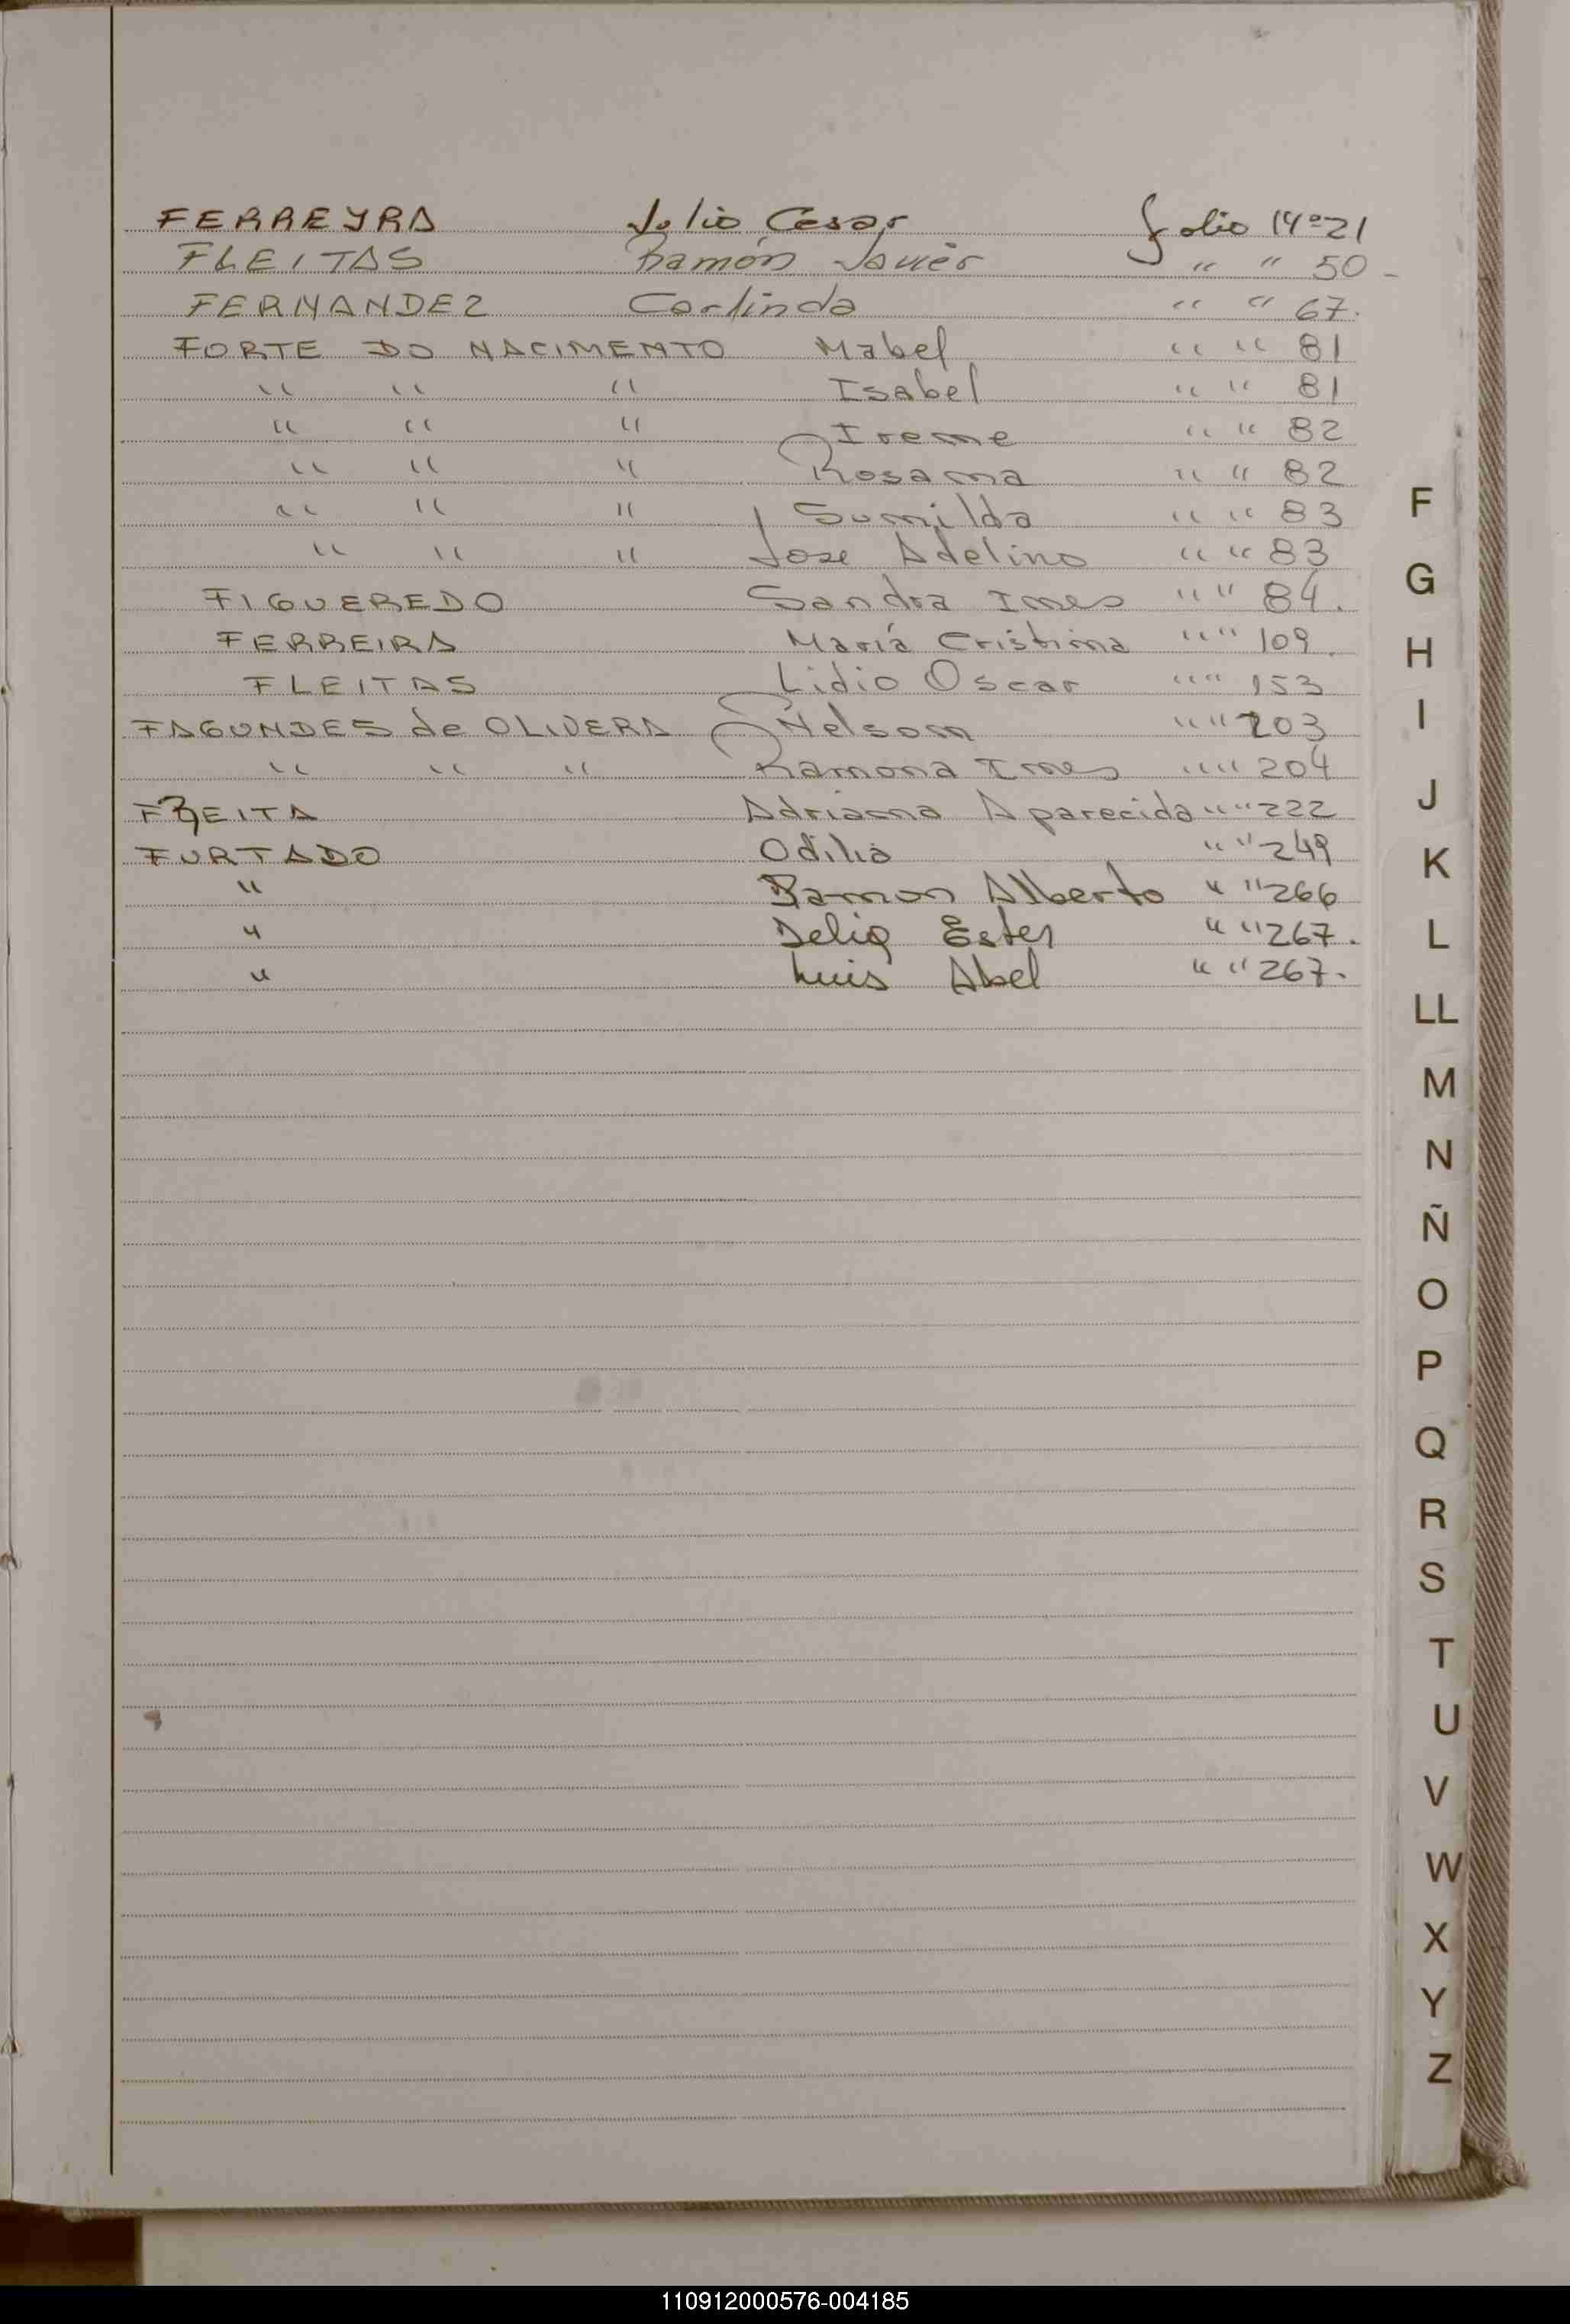 FERREYRA Julio Cesar folio Nº 21
FLEITAS Ramón Javier " " 50 -
FERNANDEZ Carlinda " " 67.
FORTE DO NACIMENTO Mabel " " 81
" " " Isabel " " 81
" " " Irene " " 82
" " " Rosana " " 82
" " " Sunilda " " 83
" " " Jose Adelino " " 83
FIGUEREDO Sandra Ines " " 84.
FERREIRA María Cristina " " 109.
FLEITAS Lidio Oscar " " 153
FAGUNDES de OLIVERA Nelson " " 203
" " " Ramona Ines " " 204
FREITA Adriana Aparecida " " 222
FURTADO Odilio " " 249
" Ramon Alberto " " 266
" Delia Ester " " 267.
" Luis Abel " " 267.
F
G
H
I
J
K
L
LL
M
N
Ñ
O
P
Q
R
S
T
U
V
W
X
Y
Z
110912000576-004185